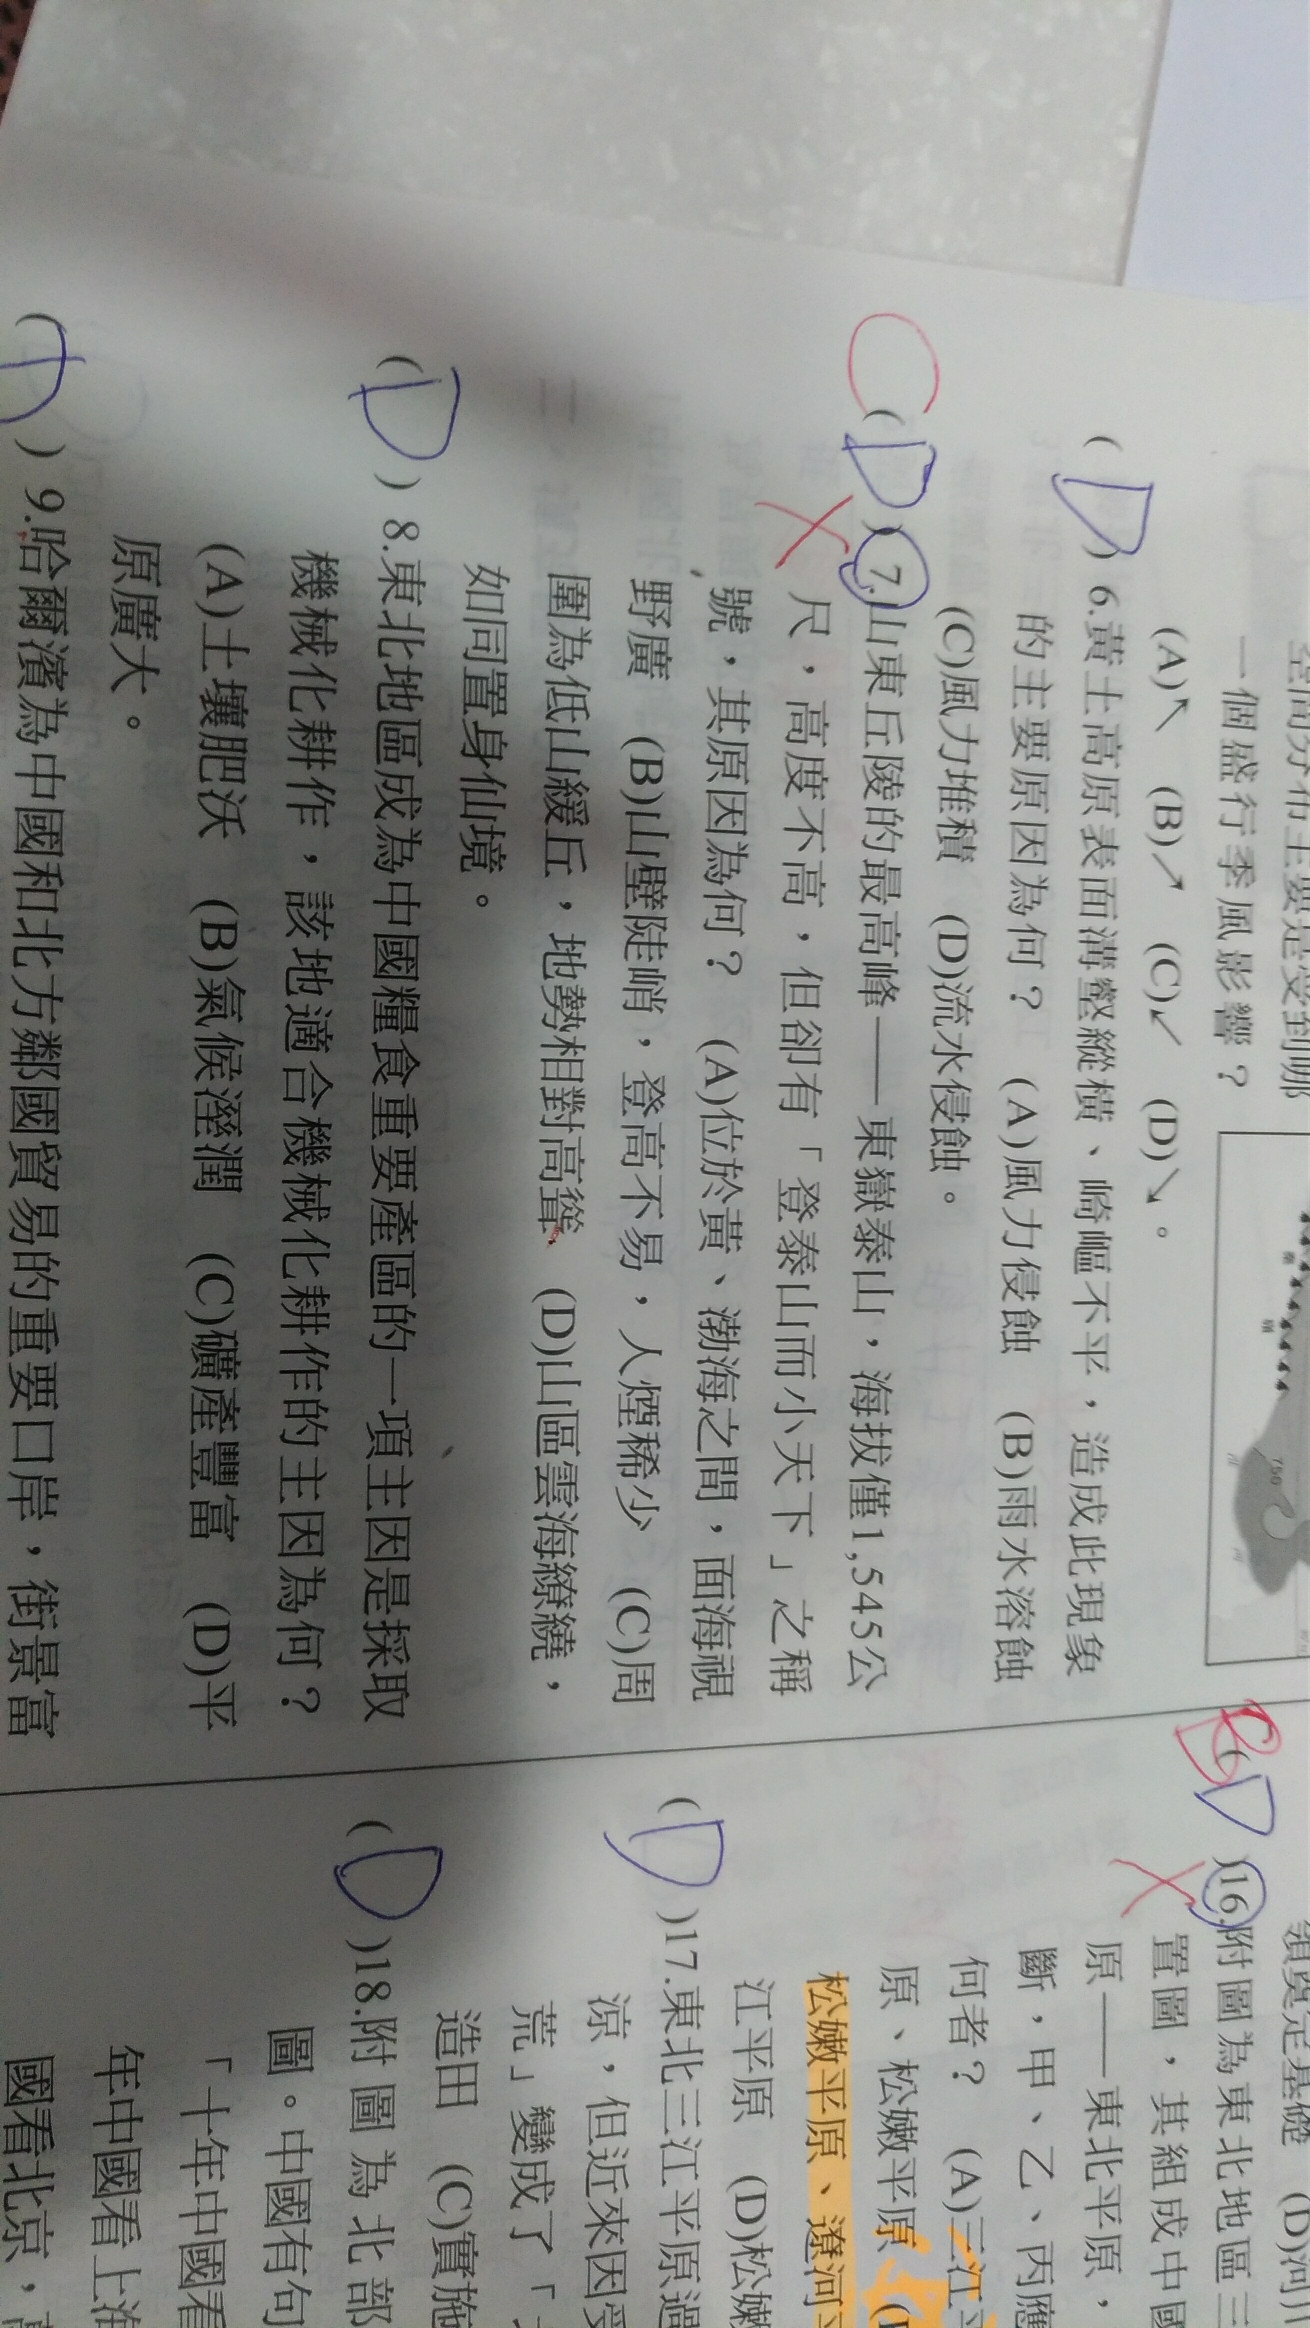 空間分布主要是受到哪
一個盛行季風影響？
(A)↖ (B)↗ (C)↙ (D)↘。
750
(D) 6.黃土高原表面溝壑縱橫、崎嶇不平，造成此現象
的主要原因為何？ (A)風力侵蝕 (B)雨水溶蝕
(C)風力堆積 (D)流水侵蝕。
C
(D) 7.山東丘陵的最高峰——東嶽泰山，海拔僅1,545公
尺，高度不高，但卻有「登泰山而小天下」之稱
號，其原因為何？ (A)位於黃、渤海之間，面海視
野廣 (B)山壁陡峭，登高不易，人煙稀少 (C)周
圍為低山緩丘，地勢相對高聳 (D)山區雲海繚繞，
如同置身仙境。
(D) 8.東北地區成為中國糧食重要產區的一項主因是採取
機械化耕作，該地適合機械化耕作的主因為何？
(A)土壤肥沃 (B)氣候溼潤 (C)礦產豐富 (D)平
原廣大。
) 9.哈爾濱為中國和北方鄰國貿易的重要口岸，街景富
領奠定基礎 (D)河川
B
(D)16.附圖為東北地區三
置圖，其組成中國
原——東北平原，
斷，甲、乙、丙應
何者？ (A)三江平
原、松嫩平原
松嫩平原、遼河平
江平原 (D)松嫩
(D)17.東北三江平原過
涼，但近來因受
荒」變成了「
造田 (C)實施
(D)18.附圖為北部
圖。中國有句
「十年中國看
年中國看上海
國看北京，